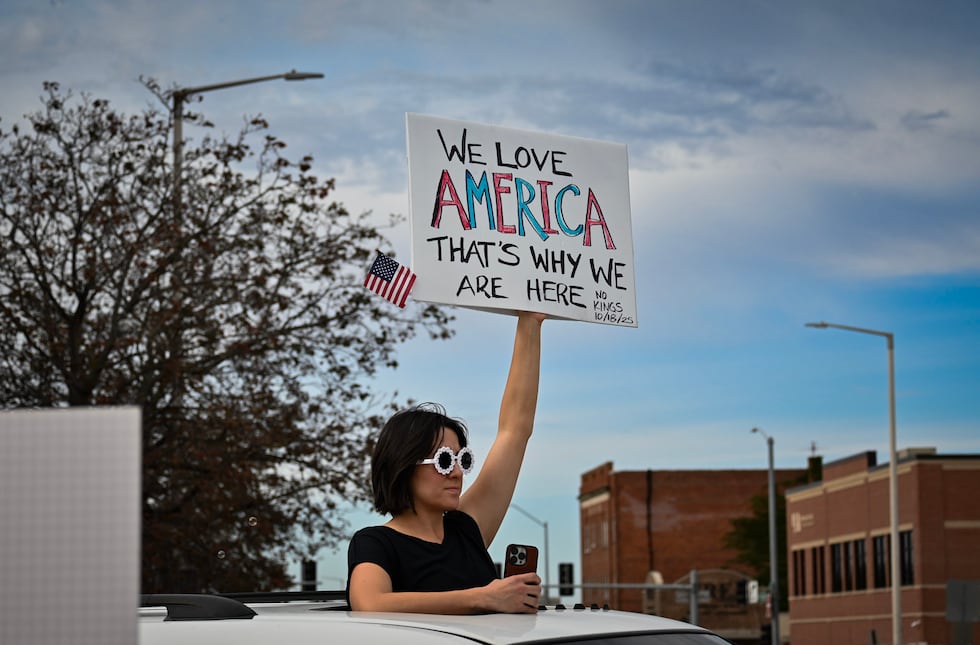 WE LOVE
AMERICA
THAT'S WHY WE
ARE HERE
NO
KINGS
10/18/25